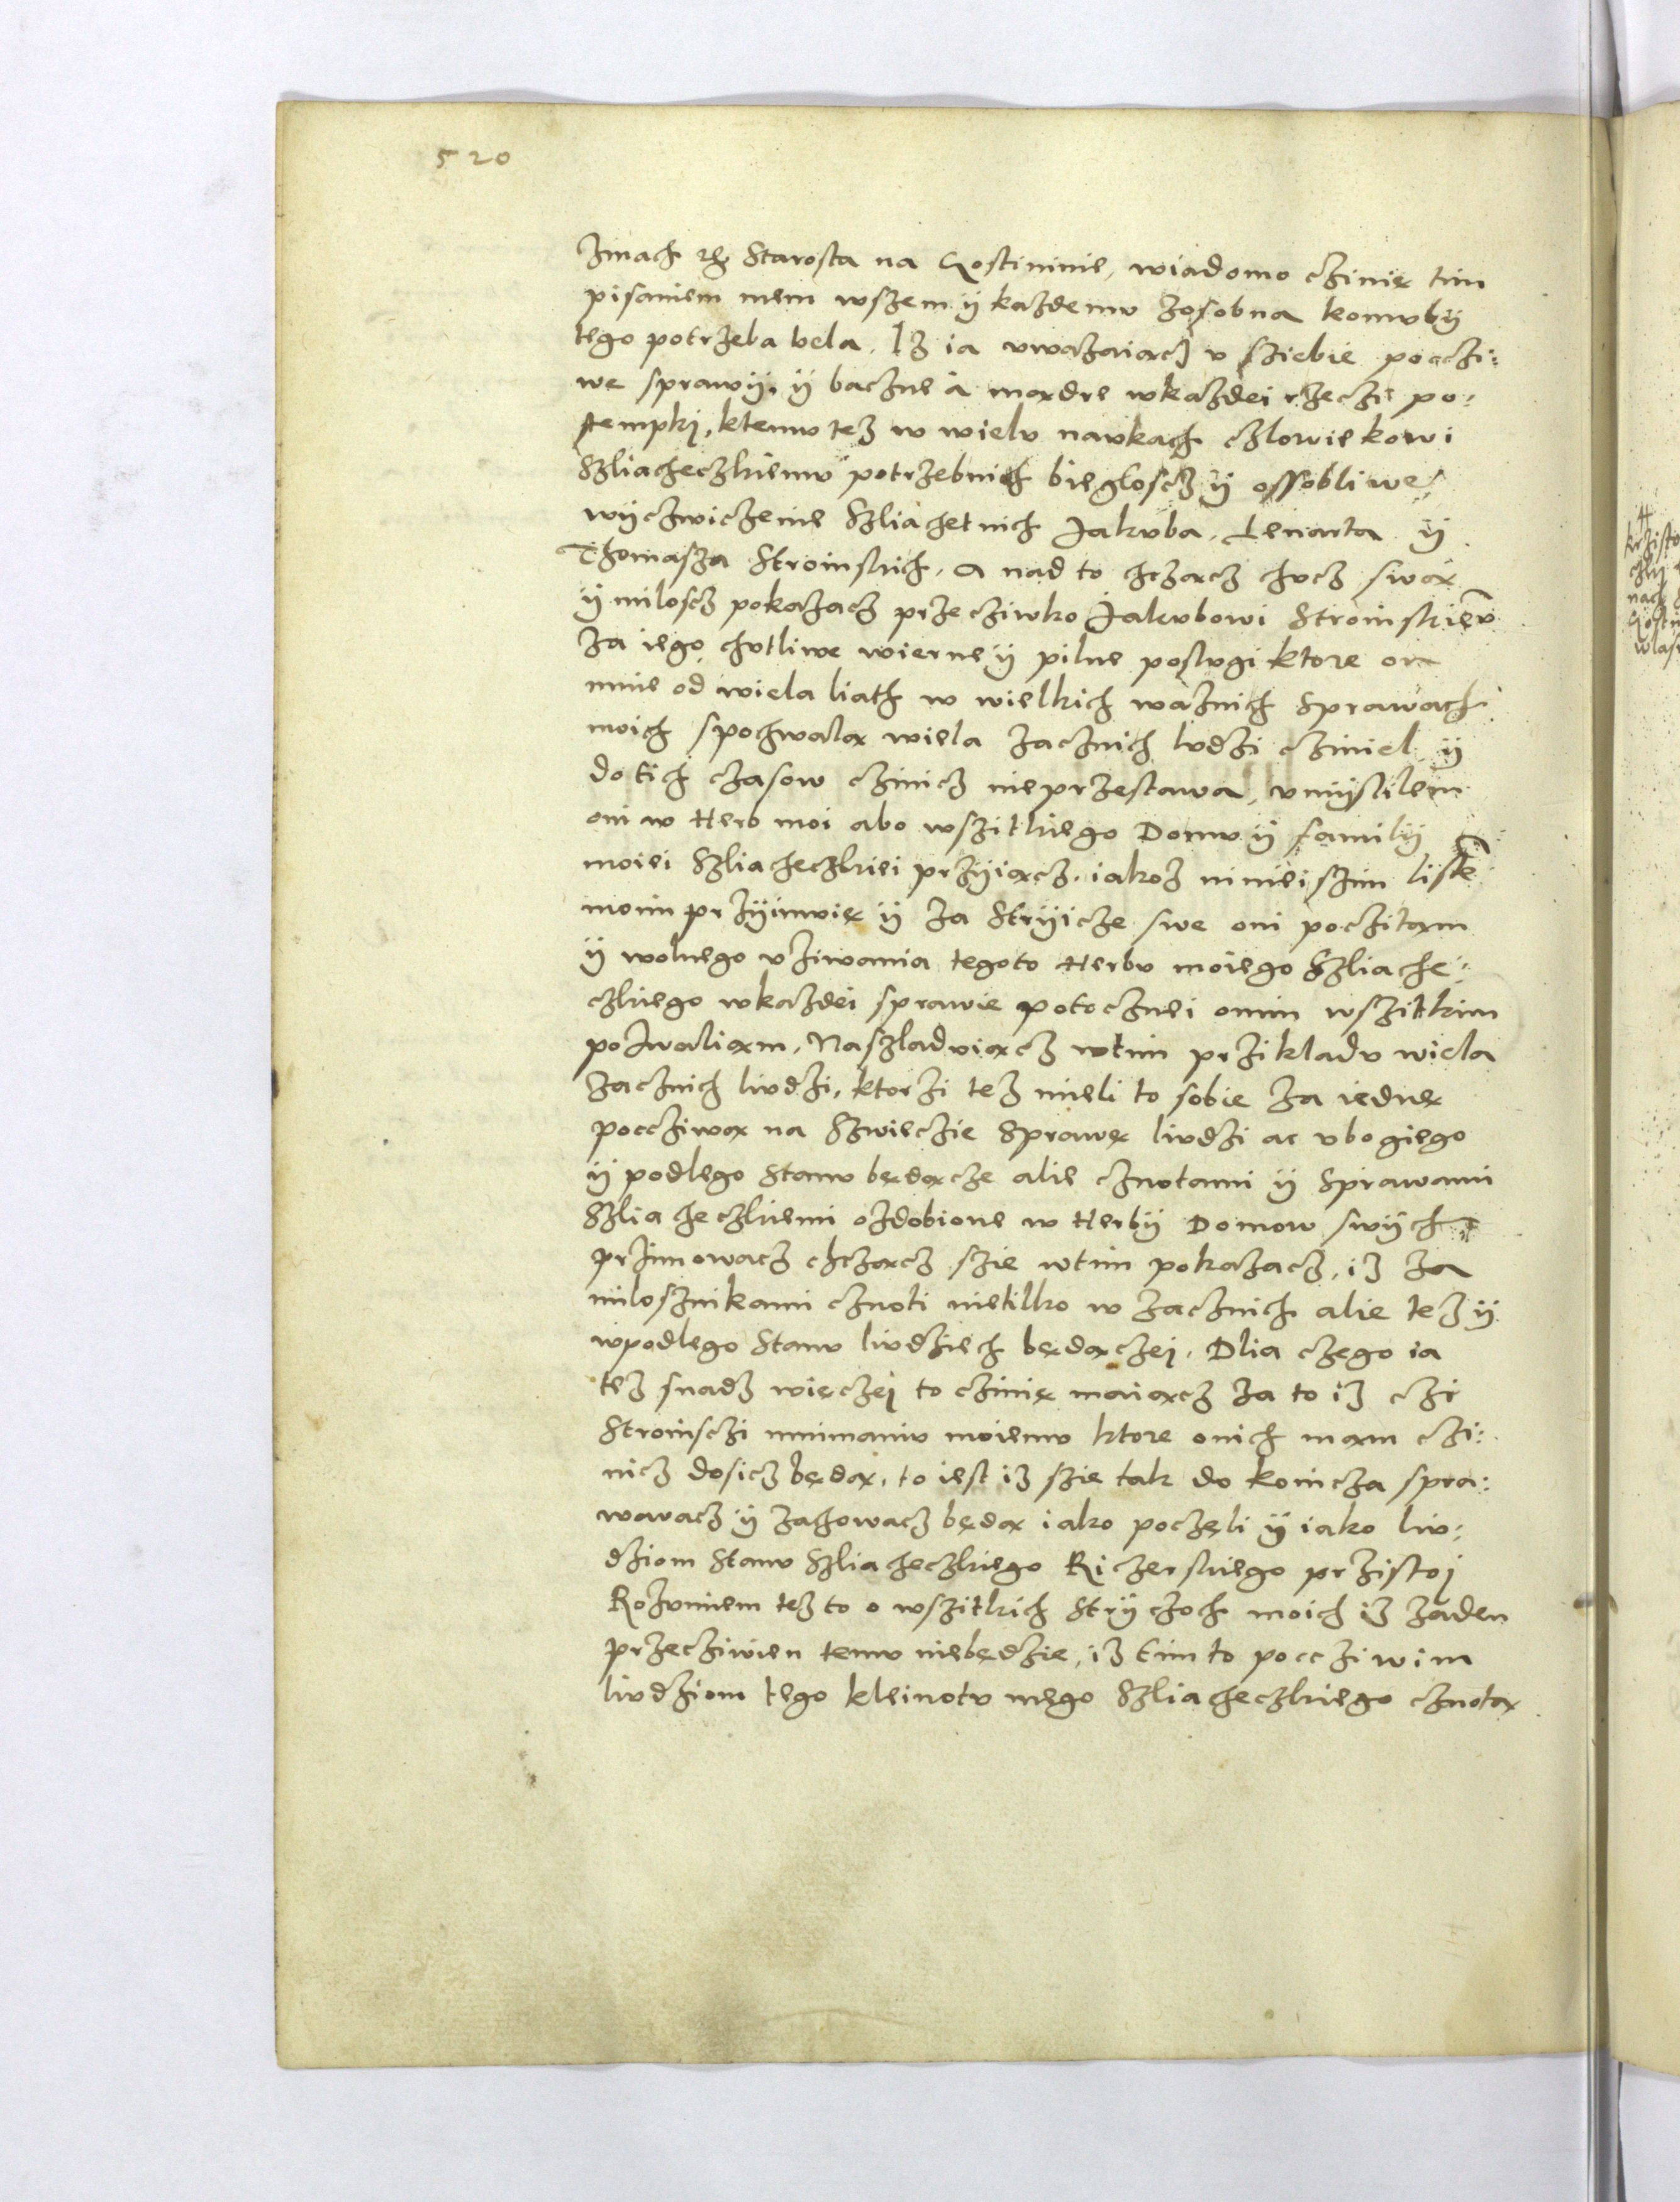 520
Zmach etc Starosta na Gostininie, wiadomo cżinię tim
pisaniem mem wszem ÿ każdemv zosobna komvbÿ
tego potrzeba bela. Iż ia vważaiącz v sziebie poczczi:
we sprawÿ, ÿ baczne a mądre wkażdei rzeczi po:
stempki, ktemv też w wielv navkach człowiekowi
Szliacheczkiemv potrzebnich biegłoscz ÿ ossobliwe
wÿczwiczenie Szliachetnich Jakvba, Lenarta ÿ
Thomasza Stroinskich, A nad to chcząncz chvcz swą
ÿ miłoscz pokazacz przecziwko Jakvbowi Stroinskiev
Za iego chvtliwe wierne ÿ pilne posługi ktore on
mnie od wiela liath w wielkich ważnich Sprawach
moich spochwalą wiela zacznich lvdzi cziniel ÿ
do tich czasow czinicz nieprzestawa, vmÿslilem
oni w Herb moi abo wszitkiego Domv ÿ familÿ
moiei Szliacheczkiei przÿiącz, iakoż ninieiszim liste
moim przÿimvię ÿ za Strÿicze swe oni poczitam
ÿ wolnego vżiwania tegoto Herbv moiego Szliache:
czkiego wkażdei sprawie potocznei onim wszitkim
pozwaliam, Naszladviącz wtim przikladv wiela
zacznich livdzi, ktorzi też mieli to sobie za iednę
poccziwą na Szwieczie Sprawę livdzi ac vbogiego
ÿ podlego Stanv będącze alie cznotami ÿ Sprawami
Szliacheczkiemi ozdobione w Herbÿ Domow swÿch
przimowacz chcząncz szie wtim pokazacz, iż za
milosznikami cznoti nietilko w zacznich alie też ÿ
wpodlego Stanv livdziech będączei. Dlia czego ia
też snadz więczei to czinię maiącz za to iż czi
Stroinsczi mnimaniv moiemv ktore onich mam czi:
nicz dosicz będą, to iest iż szie tak do koincza spra:
wowacz ÿ zachowacz będą iako poczęli ÿ iako liv:
dziom Stanv Szliacheczkiego Riczerskiego przistoi
Rozvmiem też to o wszitkich Strÿczoch moich iż żaden
przecziwien temv niebędzie, iż timto poccziwim
livdziom tego kleinotv mego Szliacheczkiego cznotą